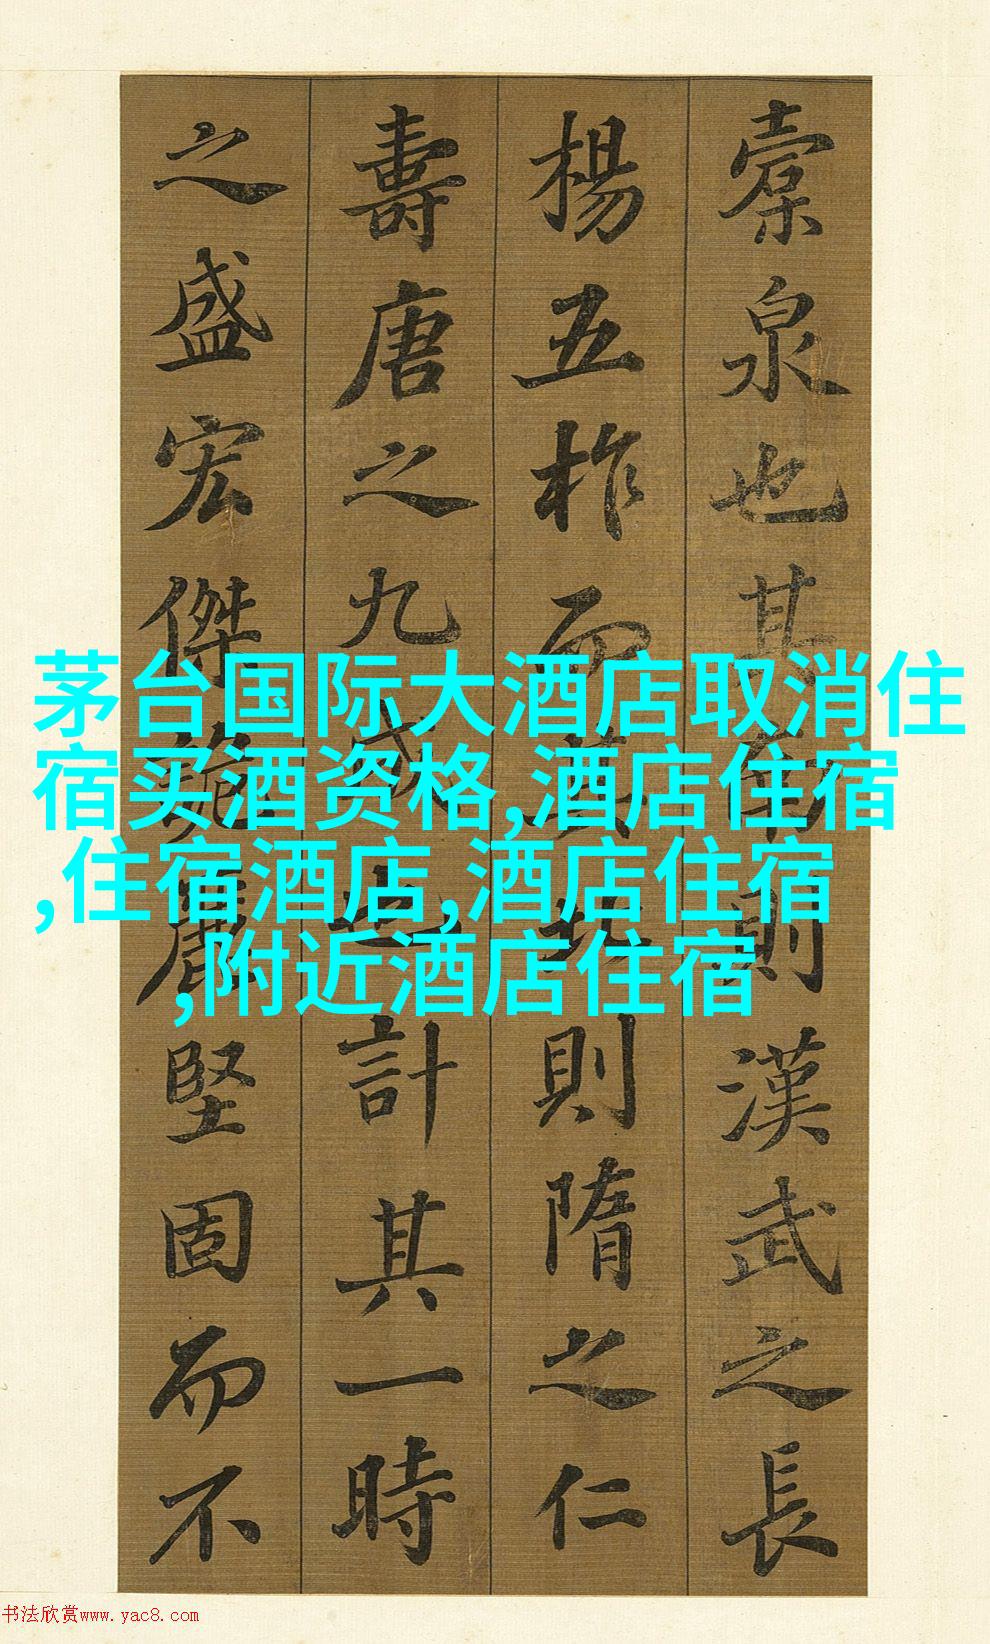 槖泉也其南則漢武之長
楊五柞而其北則隋之仁
壽唐之九成也計其一時
之盛宏傑麗堅固而不
茅台国际大酒店取消住
宿买酒资格,酒店住宿
,住宿酒店,酒店住宿
,附近酒店住宿
书法欣赏www.yac8.com